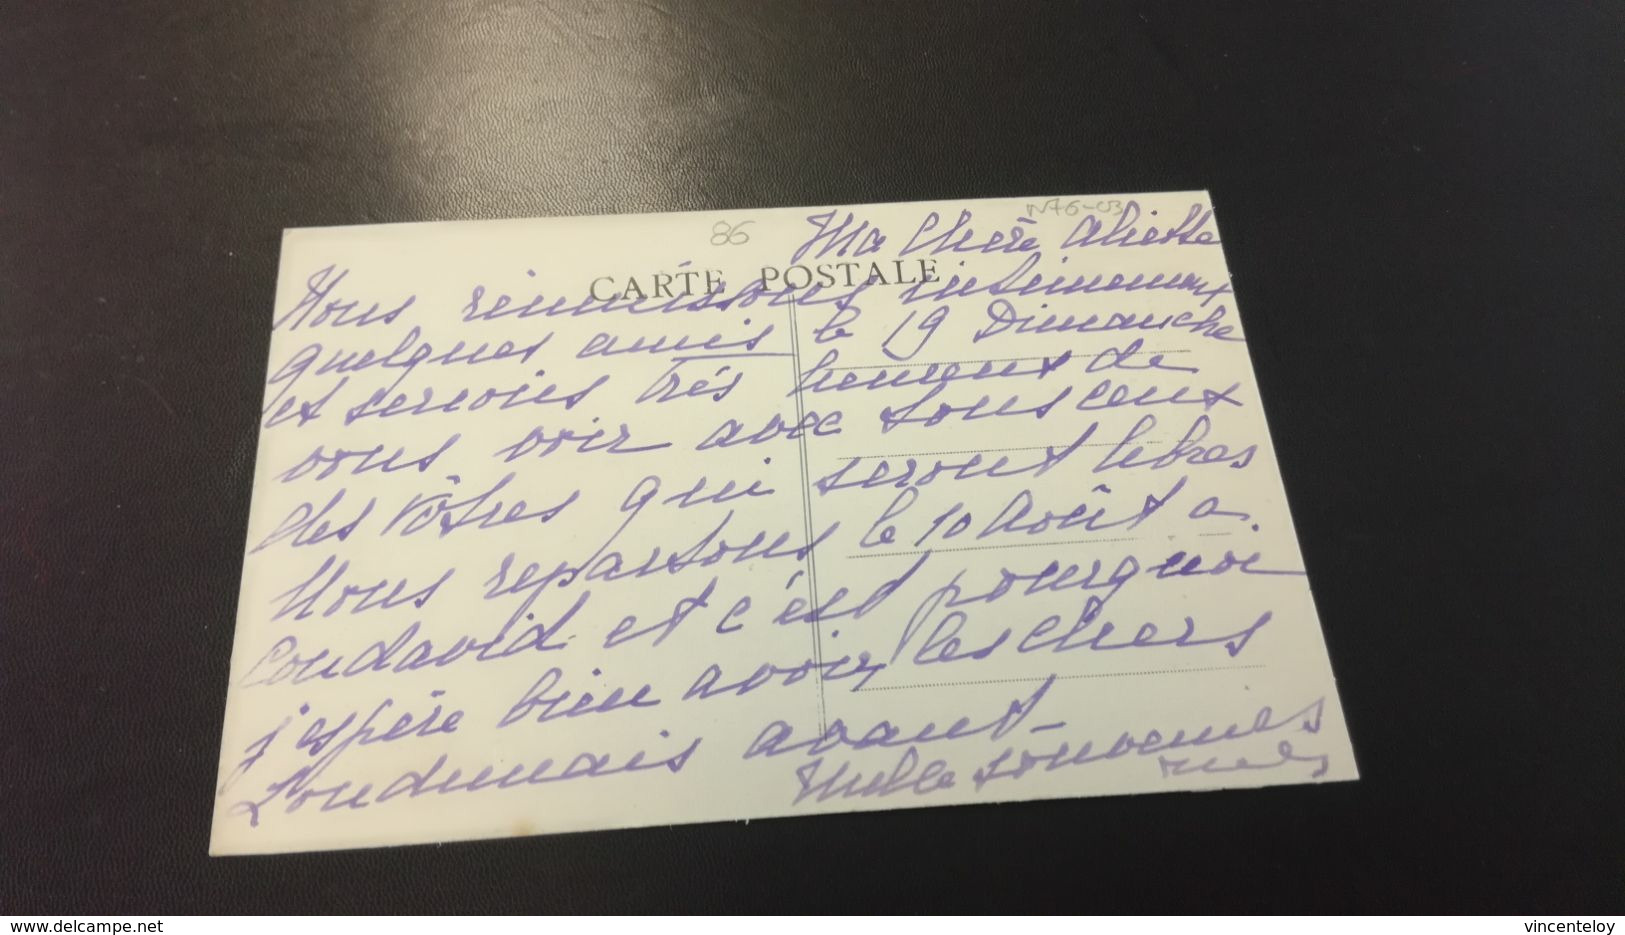 86
N76-03
Ma Chère Aliette
CARTE POSTALE
Nous réunissons intimement
quelques amis le 19 Dimanche
et serions très heureux de
vous voir avec tous ceux
des vôtres qui seront libres
Nous repartons le 10 Août a
Loudavid et c'est pourquoi
j'espère bien avoir les chers
Loudunais avant -
Mille souvenirs
delcampe.net
vincenteloy